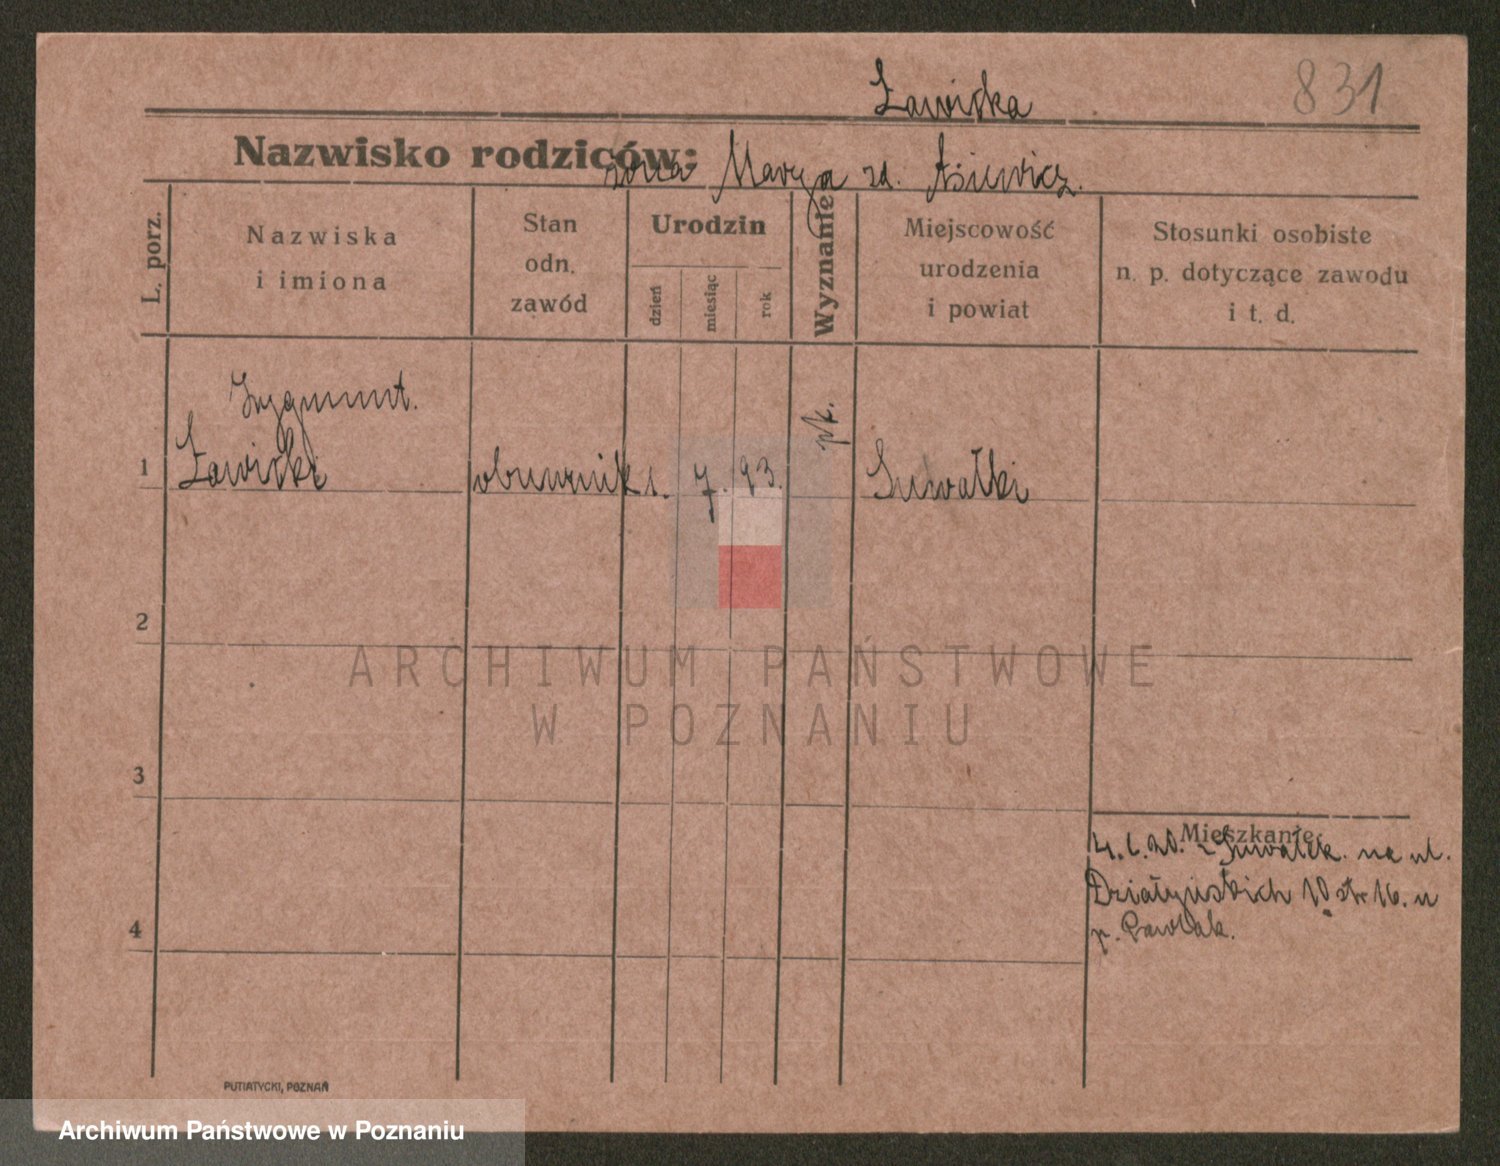 831
Ławiska
Nazwisko rodziców:
żona Marya zd.
L. porz.
Nazwiska
i imiona
Stan
odn.
zawód
Urodzin
dzień
miesiąc
rok
Wyznanie
Miejscowość
urodzenia
i powiat
Stosunki osobiste
n. p. dotyczące zawodu
i t. d.
Zygmunt.
1 Ławiski obuwnik 1. 7. 93. rk. Suwałki
2
3
4
Mieszkanie
z Suwałk. na ul.
Działyńskich 10 str 16. u
p. Pawlak.
ARCHIWUM PAŃSTWOWE
W POZNANIU
PUTIATYCKI, POZNAŃ
Archiwum Państwowe w Poznaniu